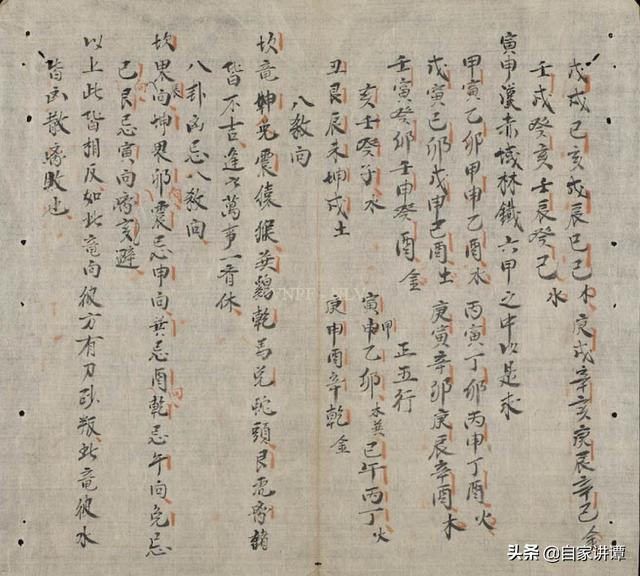 戊戌己亥戊辰己巳木庚戌辛亥庚辰辛巳金
壬戌癸亥壬辰癸巳水
寅申漢赤城林鐵六甲之中以是求
甲寅乙卯甲申乙酉水丙寅丁卯丙申丁酉火
戊寅己卯戊申己酉土庚寅辛卯庚辰辛酉木
壬寅癸卯壬申癸酉金
正五行
亥壬癸子水
寅甲乙卯木巽巳午丙丁火
丑艮辰未坤戌土
庚申酉辛乾金
八敎向
坎竜坤兔震猿猴巽鷄乾馬兌蛇頭艮虎离猪
皆不吉逢之萬事一齊休
八卦凶忌八敎向
坎忌辰向坤忌卯向震忌申向巽忌酉乾忌午向兌忌
巳艮忌寅向离亥避
以上此皆相反如此竜向彼方有刀砂叛此竜彼水
皆凶散离敗也
VNPF NLV
头条 @自家讲谭